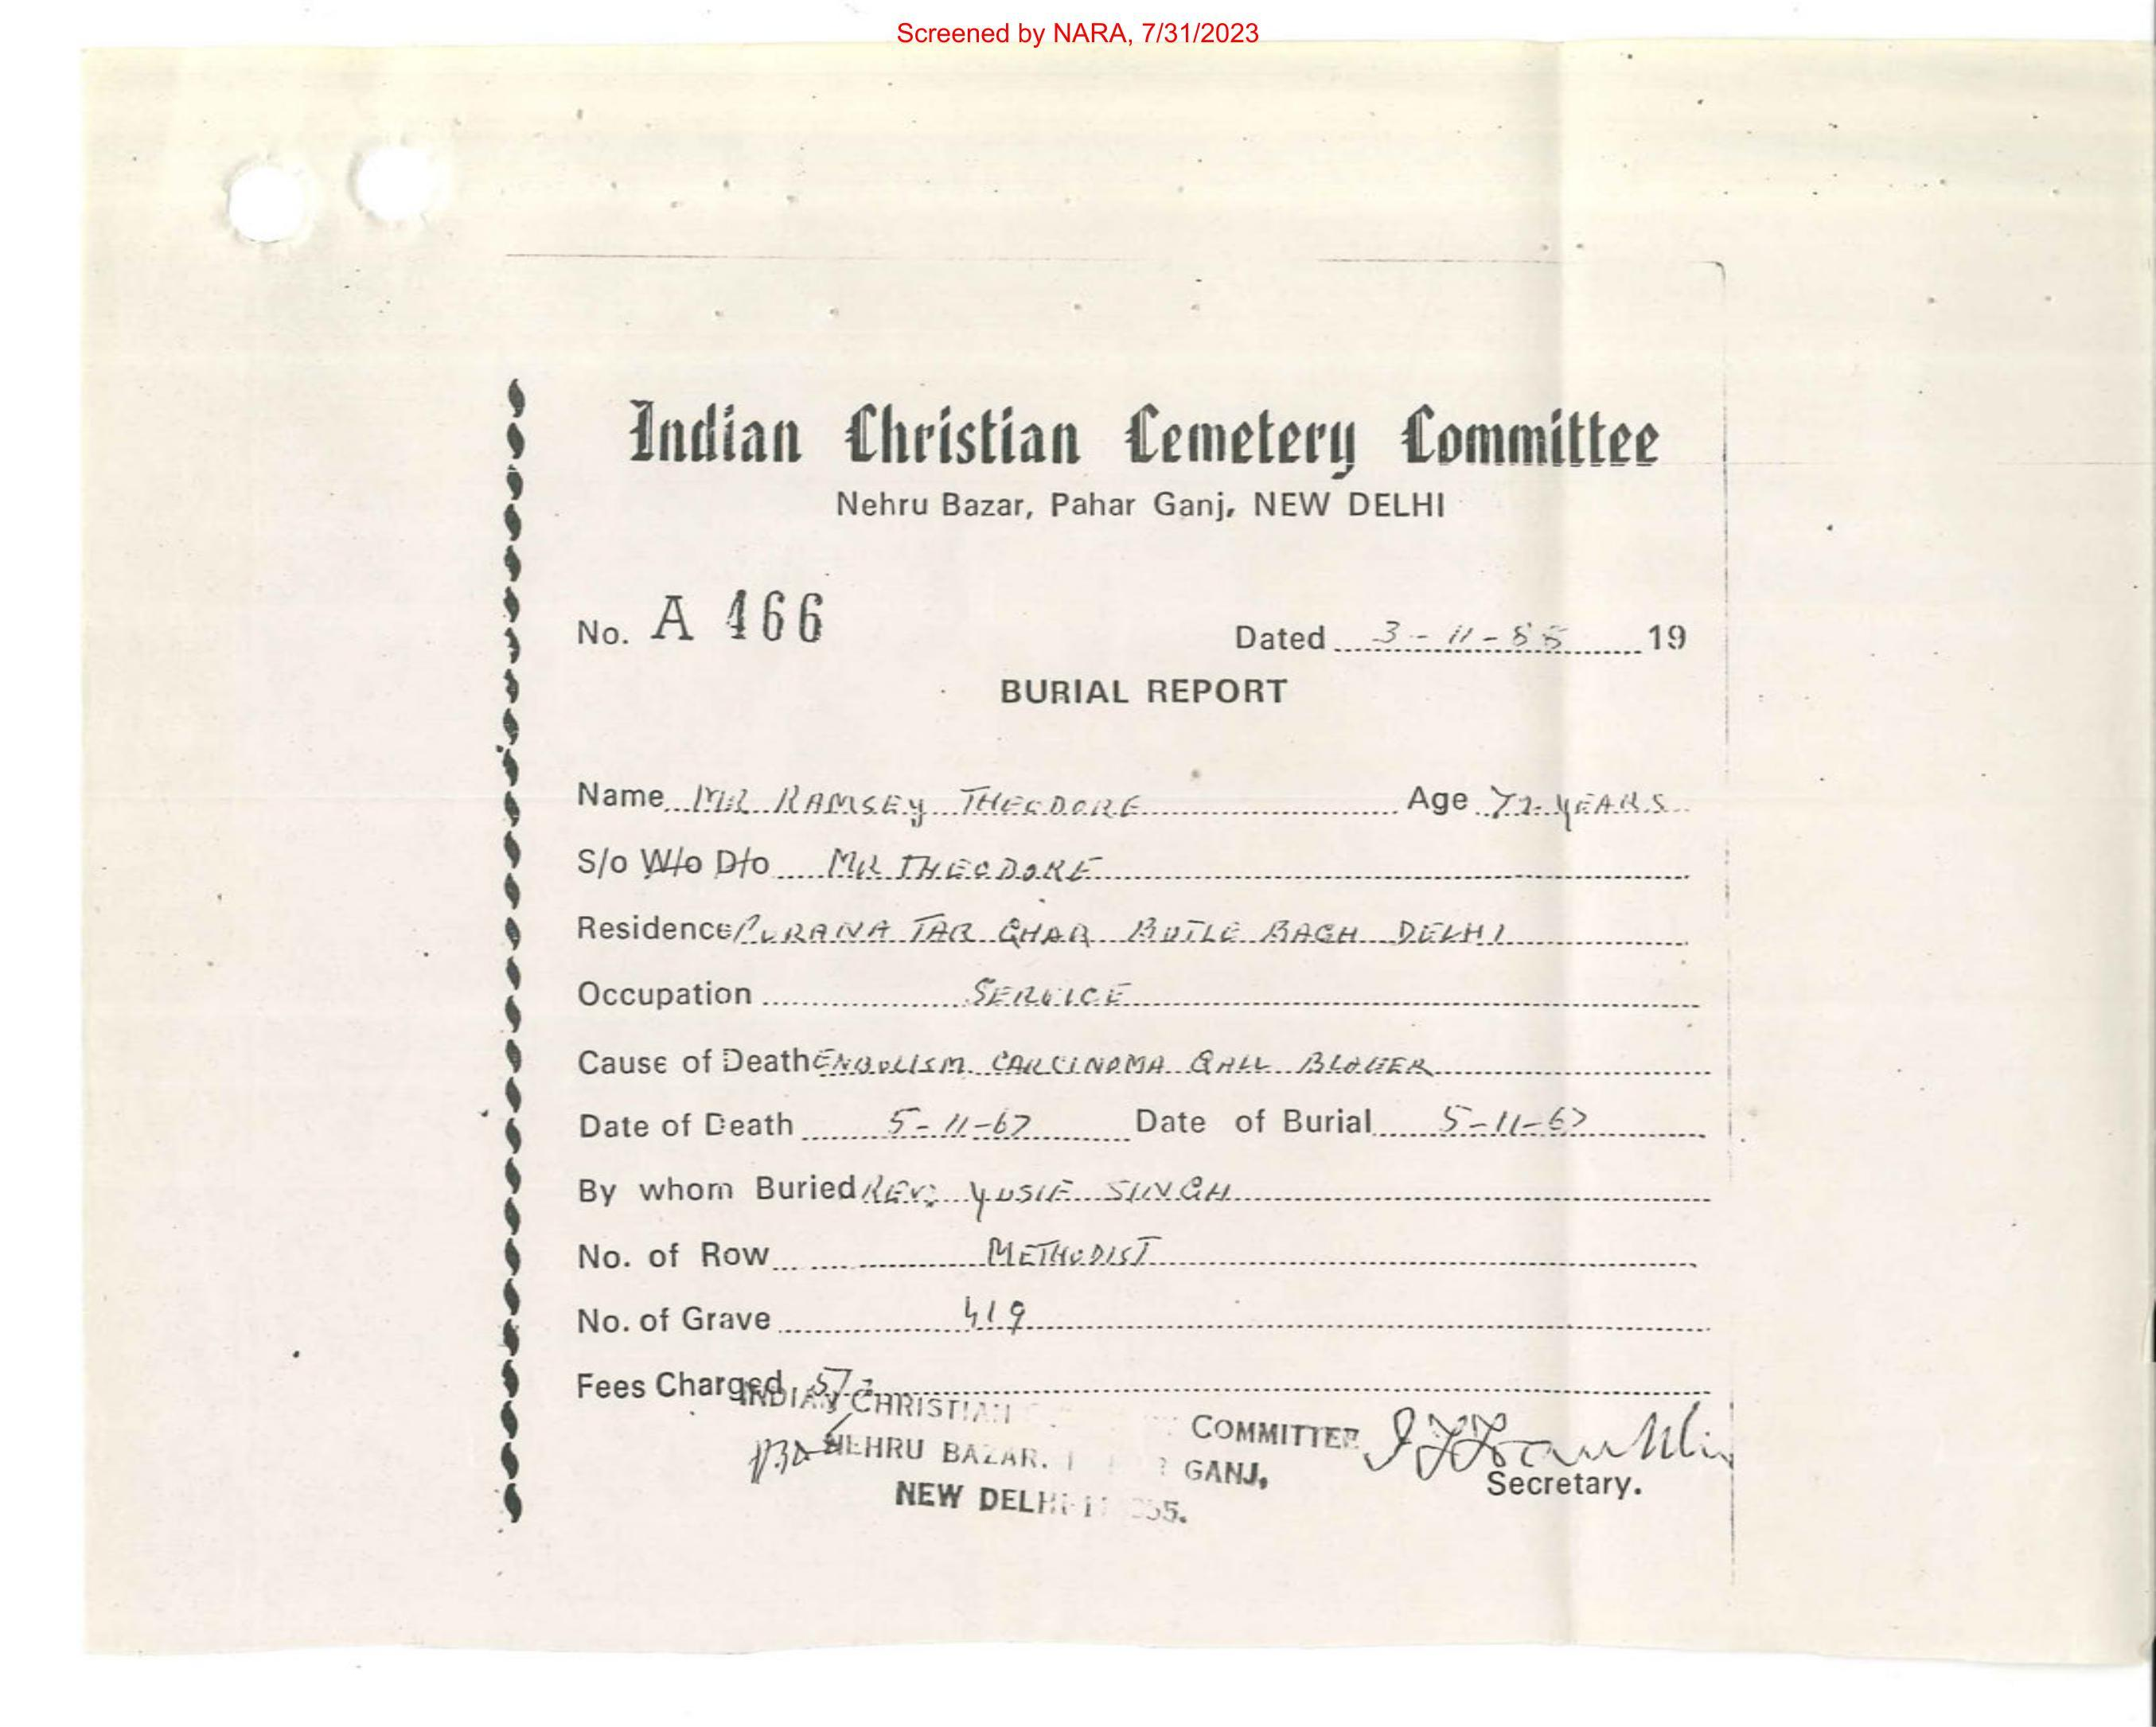 Screened by NARA, 7/31/2023
Indian Christian Cemetery Committee
Nehru Bazar, Pahar Ganj, NEW DELHI
No. A 466
Dated 3-11-88 19
BURIAL REPORT
Name MR RAMSEY THEODORE Age 72 YEARS
S/o W/o D/o MR THEODORE
Residence PURANA TAR GHAR BUTLE BAGH DELHI
Occupation SERVICE
Cause of Death EMBOLISM CARCINOMA GALL
Date of Death 5-11-67 Date of Burial 5-11-67
By whom Buried REV. YUSIF SINGH
No. of Row METHODIST
No. of Grave 419
Fees Charged
INDIAN CHRISTIAN COMMITTEE
NEHRU BAZAR. GANJ,
NEW DELHI
Secretary.